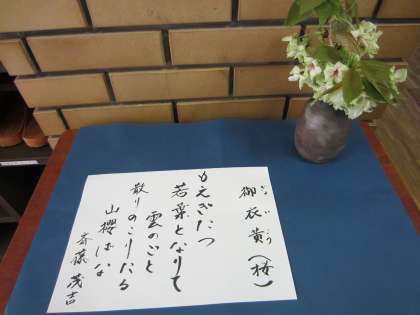 御衣黄(桜)
ぎょいこう
もえぎたつ
若葉となりて
雲のごと
散りのこりたる
山櫻ばな
斎藤茂吉